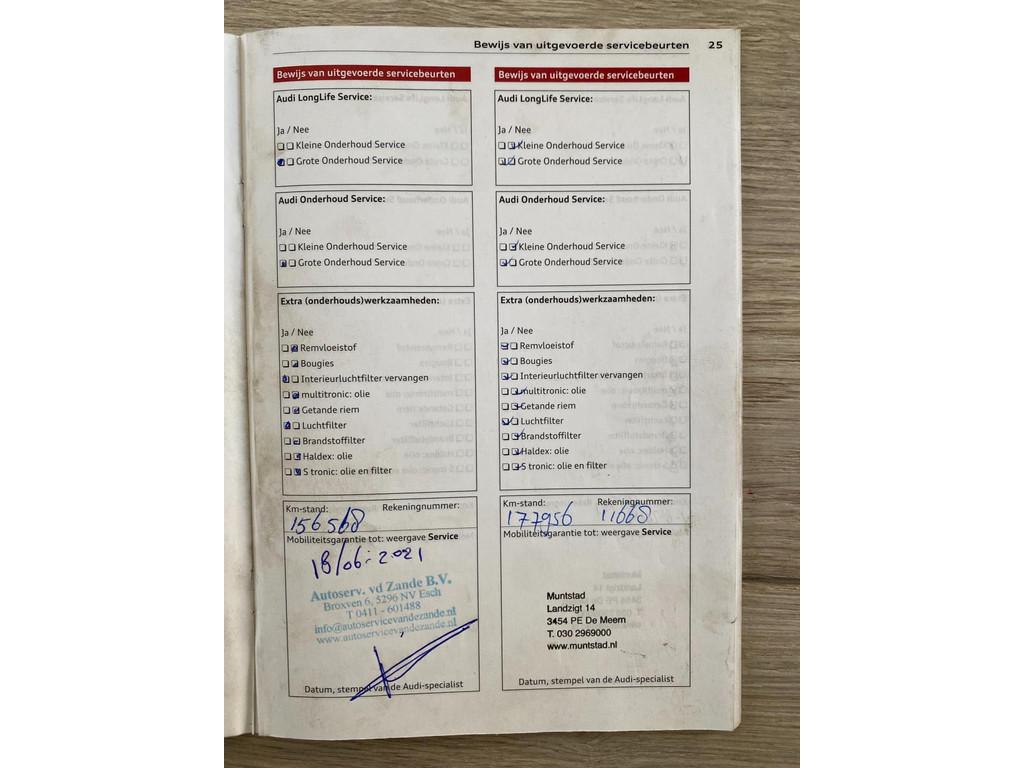 Bewijs van uitgevoerde servicebeurten 25
Bewijs van uitgevoerde servicebeurten
Audi LongLife Service:
Ja / Nee
Kleine Onderhoud Service
Grote Onderhoud Service
Audi Onderhoud Service:
Ja / Nee
Kleine Onderhoud Service
Grote Onderhoud Service
Extra (onderhouds)werkzaamheden:
Ja / Nee
Remvloeistof
Bougies
Interieurluchtfilter vervangen
multitronic: olie
Getande riem
Luchtfilter
Brandstoffilter
Haldex: olie
S tronic: olie en filter
Km-stand: Rekeningnummer:
156568
Mobiliteitsgarantie tot: weergave Service
18/06:2021
Autoserv. vd Zande B.V.
Broxven 6, 5296 NV Esch
T 0411 - 601488
info@autoservicevandezande.nl
www.autoservicevandezande.nl
Datum, stempel van de Audi-specialist
Bewijs van uitgevoerde servicebeurten
Audi LongLife Service:
Ja / Nee
Kleine Onderhoud Service
Grote Onderhoud Service
Audi Onderhoud Service:
Ja / Nee
Kleine Onderhoud Service
Grote Onderhoud Service
Extra (onderhouds)werkzaamheden:
Ja / Nee
Remvloeistof
Bougies
Interieurluchtfilter vervangen
multitronic: olie
Getande riem
Luchtfilter
Brandstoffilter
Haldex: olie
S tronic: olie en filter
Km-stand: Rekeningnummer:
177956 11668
Mobiliteitsgarantie tot: weergave Service
Muntstad
Landzigt 14
3454 PE De Meern
T. 030 2969000
www.muntstad.nl
Datum, stempel van de Audi-specialist